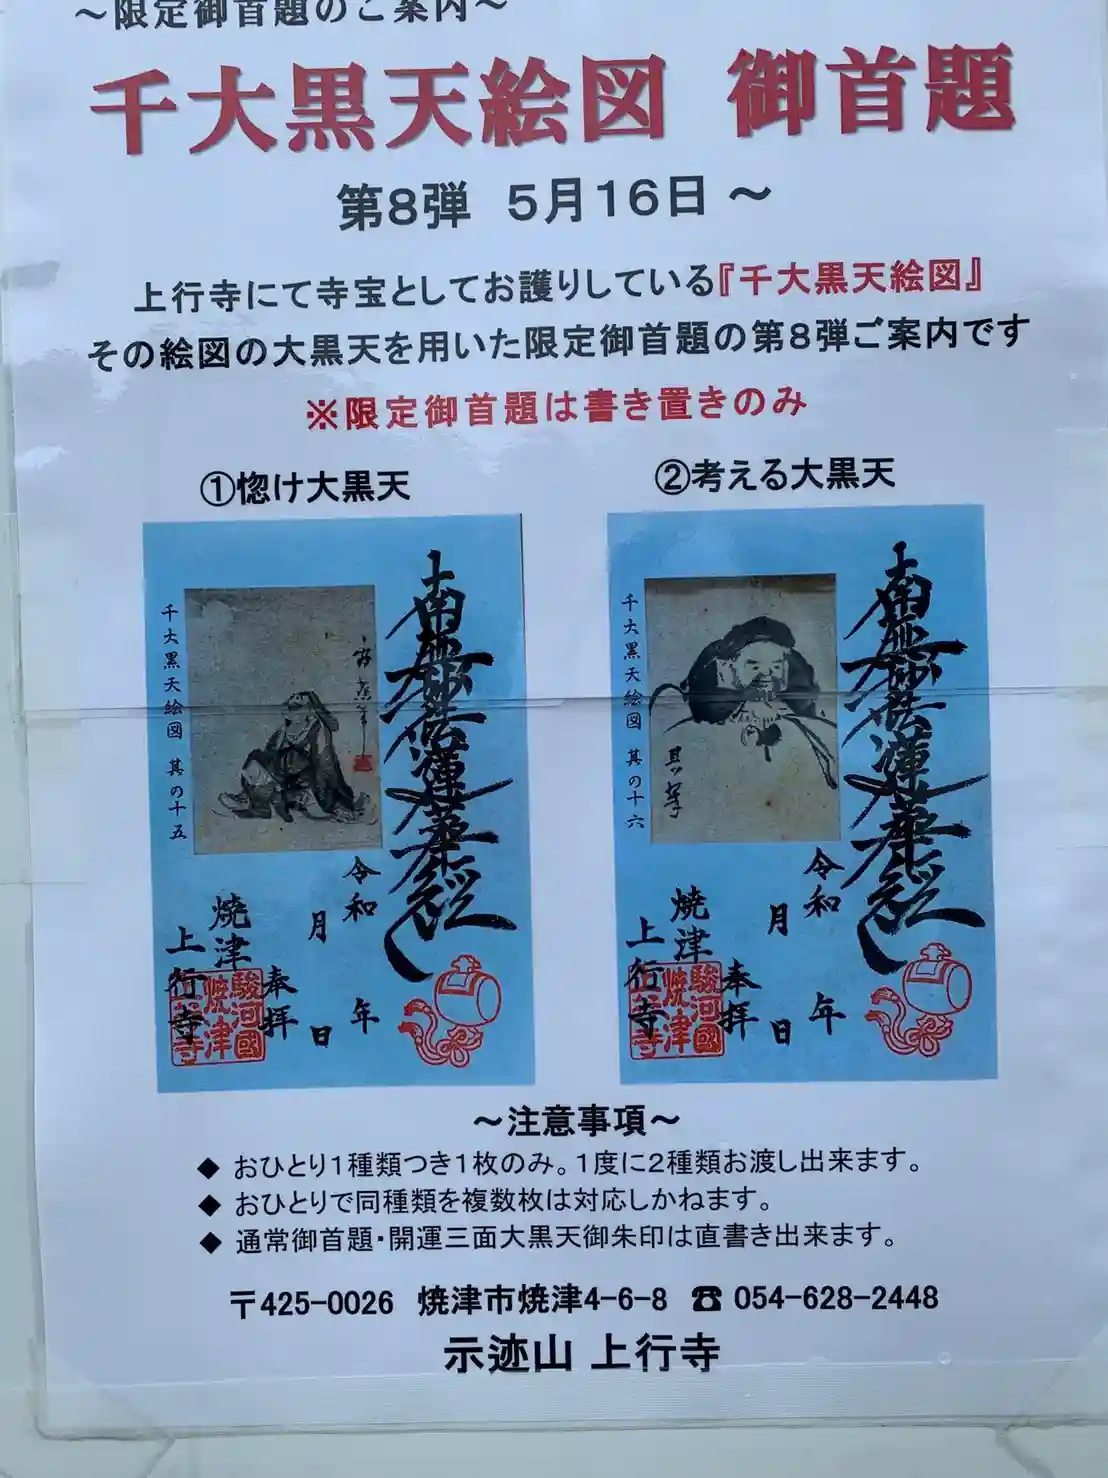 ～限定御首題のご案内～
千大黒天絵図 御首題
第8弾 5月16日～
上行寺にて寺宝としてお護りしている『千大黒天絵図』
その絵図の大黒天を用いた限定御首題の第8弾ご案内です
※限定御首題は書き置きのみ
①惚け大黒天
千大黒天絵図 其の十五
南無妙法蓮華経
令和 年
月 日
奉拝
焼津
上行寺
駿河國
焼津
上行寺
②考える大黒天
千大黒天絵図 其の十六
南無妙法蓮華経
令和 年
月 日
奉拝
焼津
上行寺
駿河國
焼津
上行寺
～注意事項～
◆ おひとり1種類つき1枚のみ。1度に2種類お渡し出来ます。
◆ おひとりで同種類を複数枚は対応しかねます。
◆ 通常御首題・開運三面大黒天御朱印は直書き出来ます。
〒425-0026 焼津市焼津4-6-8 ☎ 054-628-2448
示迹山 上行寺